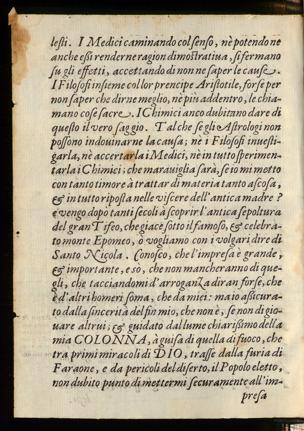 lesti. I Medici caminando col senso, nè potendo ne
anche essi renderne ragion dimostratiua, si fermano
su gli effetti, accettando di non ne saper le cause.
I Filosofi insieme col lor prencipe Aristotile, forse per
non saper che dirne meglio, nè più addentro, le chia-
mano cose sacre. I Chimici anco dubitano dare di
questo il vero saggio. Tal che se gli Astrologi non
possono indouinarne la causa; nè i Filosofi inuesti-
garla, nè accertarla i Medici, nè in tutto sperimen-
tarla i Chimici; che marauiglia sarà, se io mi motto
con tanto timore à trattar di materia tanto ascosa,
& in tutto riposta nelle viscere dell'antica madre?
e vengo dopo tanti secoli à scoprir l'antica sepoltura
del gran Tifeo, che giace sotto il famoso, & celebra-
to monte Epomeo, ò vogliamo con i volgari dire di
Santo Nicola. Conosco, che l'impresa è grande,
& importante, e so, che non mancheranno di que-
gli, che tacciandomi d'arroganza diran forse, che
è d'altri homeri soma, che da miei: ma io assicura-
to dalla sincerità del fin mio, che non è, se non di gio-
uare altrui; & guidato dal lume chiarissimo della
mia COLONNA, à guisa di quella di fuoco, che
tra primi miracoli di DIO, trasse dalla furia di
Faraone, e da pericoli del diserto, il Popolo eletto,
non dubito punto di mettermi securamente all'im-
presa